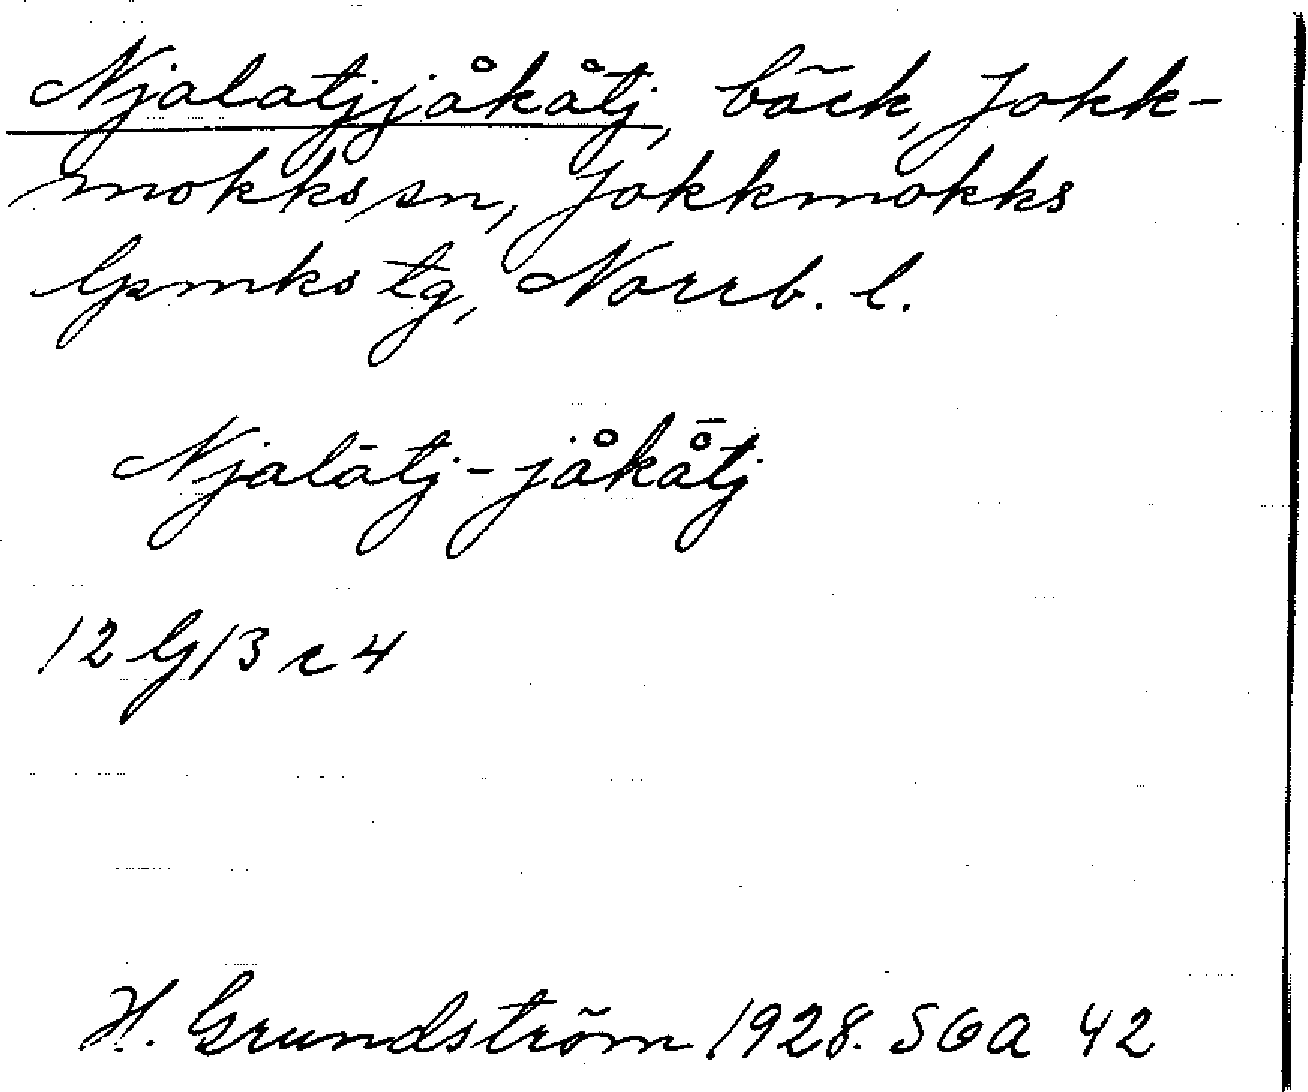 Njalatjjåkåtj, bäck, Jokk-
mokks sn, Jokkmokks
lpmks tg, Norrb. l.
Njalātj-jåkå̄tj
12 G/3 c 4
H. Grundström 1928. SOA 42